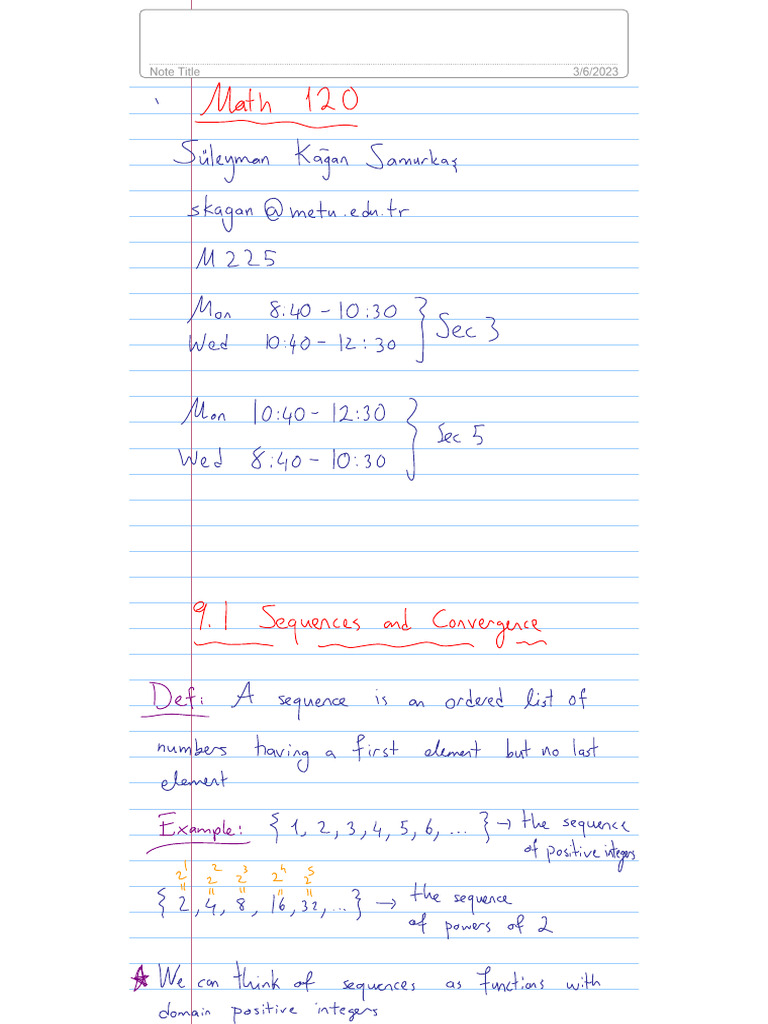 Note Title
3/6/2023
Math 120
Süleyman Kağan Samurkaş
skagan@metu.edu.tr
M225
Mon 8:40-10:30
Wed 10:40-12:30 } Sec 3
Mon 10:40-12:30
Wed 8:40-10:30 } Sec 5
9.1 Sequences and Convergence
Def: A sequence is an ordered list of
numbers having a first element but no last
element
Example: {1, 2, 3, 4, 5, 6, ...} → the sequence
of positive integers
2^1 2^2 2^3 2^4 2^5
= = = = =
{2, 4, 8, 16, 32, ...} → the sequence
of powers of 2
★ We can think of sequences as functions with
domain positive integers